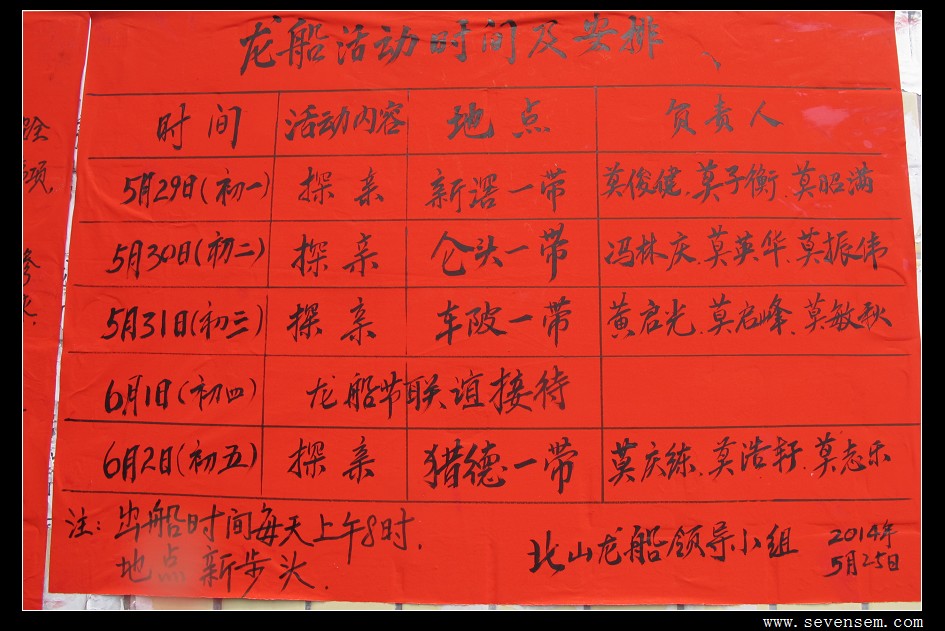 龙船活动时间及安排
时间 活动内容 地点 负责人
5月29日(初一) 探亲 新滘一带 莫俊健.莫子衡 莫昭满
5月30日(初二) 探亲 仑头一带 冯林庆.莫英华.莫振伟
5月31日(初三) 探亲 车陂一带 黄启光.莫启峰.莫敏秋
6月1日(初四) 龙船节联谊接待
6月2日(初五) 探亲 猎德一带 莫庆练.莫浩轩.莫志乐
注: 出船时间每天上午8时.
地点新步头.
北山龙船领导小组 2014年
5月25日
项
参
www.sevensem.com